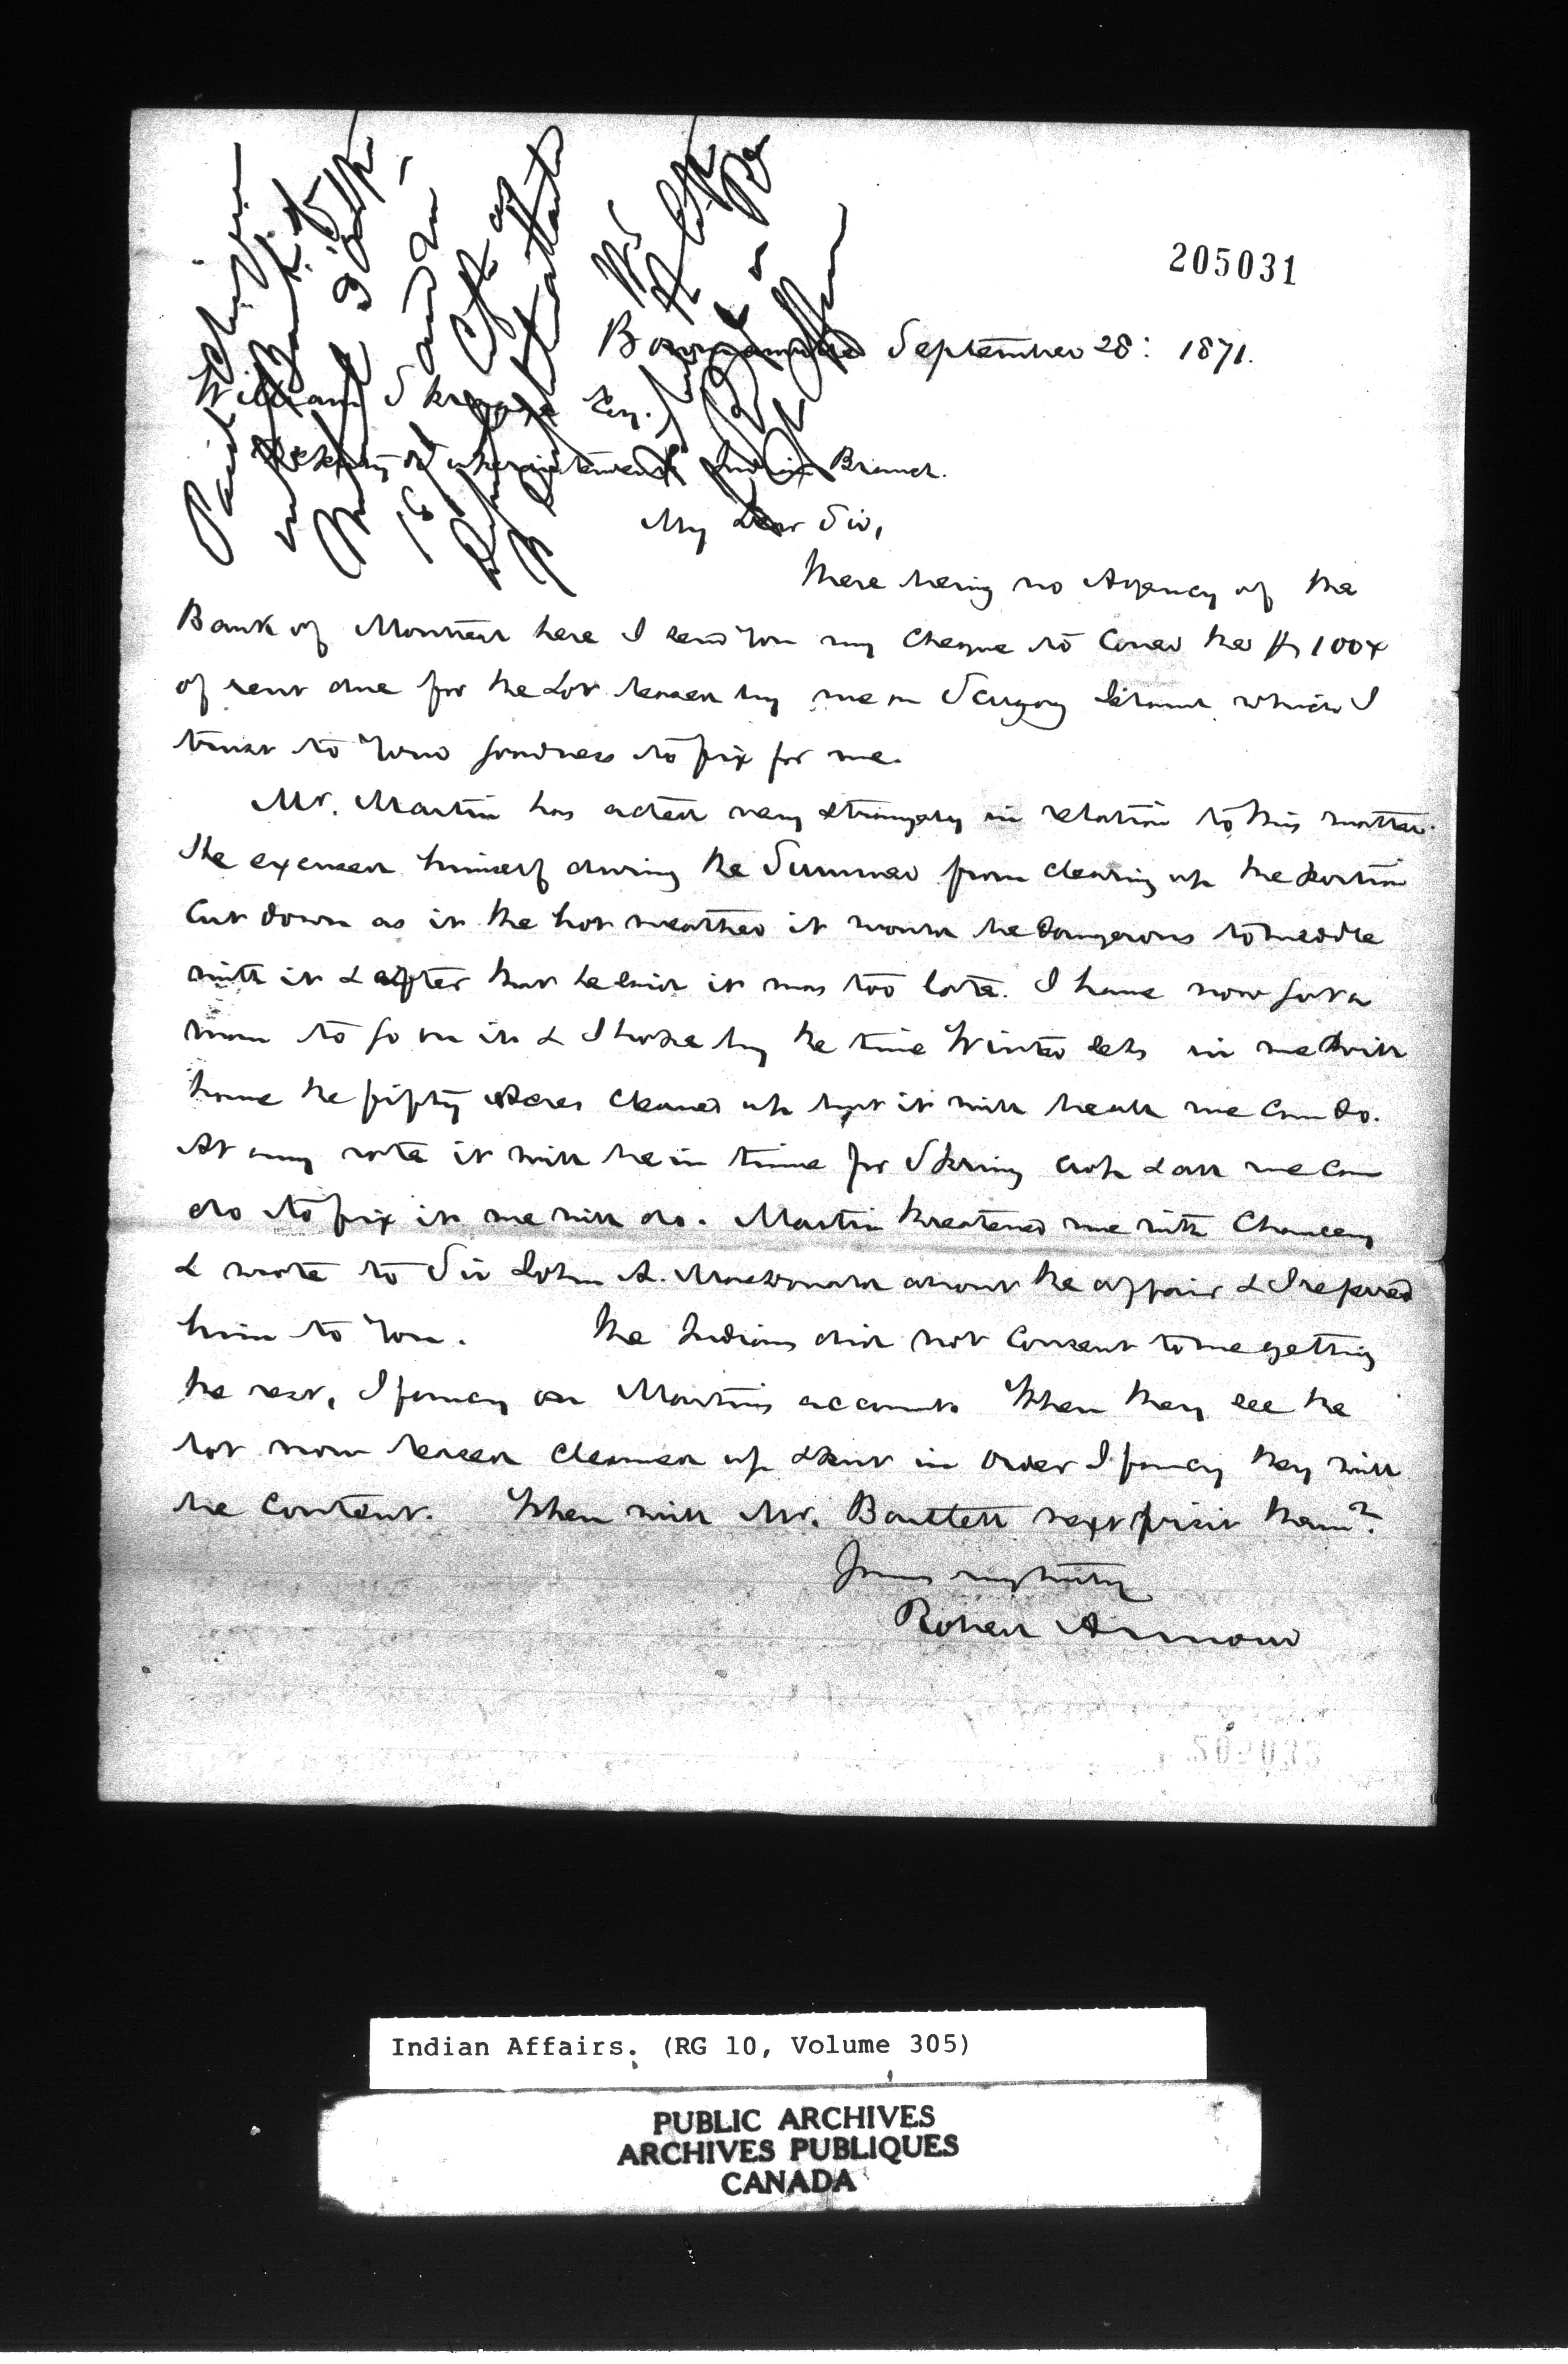 205031
Bowmanville September 28: 1871.
William Spragge Esq.
Deputy Superintendent Indian Branch.
My dear Sir,
There being no Agency of the
Bank of Montreal here I send you my Cheque to Cover the $100x
of rent due for the Lot leased by me on Scugog Island which I
trust to your goodness to fix for me.
Mr. Martin has acted very strangely in relation to this matter.
He excused himself during the Summer from clearing up the portion
Cut down as in the hot weather it would be dangerous to meddle
with it & after that he said it was too late. I have now got a
man to go on it & I hope by the time Winter sets in we will
have the fifty Acres cleared up but it will be all we can do.
At any rate it will be in time for Spring crop & all we can
do to fix it we will do. Martin threatened me with Chancery
& wrote to Sir John A. Macdonald about the affair & I referred
him to you. The Indians did not Consent to me getting
the rest, I fancy on Martins account. When they see the
lot now leased cleared up & put in order I fancy they will
be content. When will Mr. Bartlett next visit them?
Yours very truly
Robert Armour
Indian Affairs. (RG 10, Volume 305)
PUBLIC ARCHIVES
ARCHIVES PUBLIQUES
CANADA